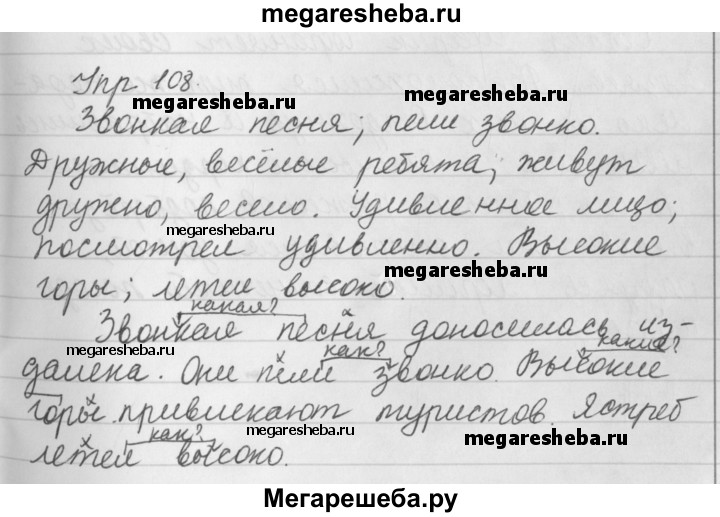 megaresheba.ru
Упр 108.
megaresheba.ru
megaresheba.ru
Звонкая песня; пели звонко.
Дружные, весёлые ребята; живут
дружно, весело. Удивленное лицо;
megaresheba.ru
посмотрел удивленно. Высокие
megaresheba.ru
горы; летел высоко.
какая?
Звонкая песня доносилась из-
megaresheba.ru
как?
какие?
далека. Они пели звонко. Высокие
горы привлекают туристов. Ястреб
как?
megaresheba.ru
megaresheba.ru
летел высоко.
Мегарешеба.ру